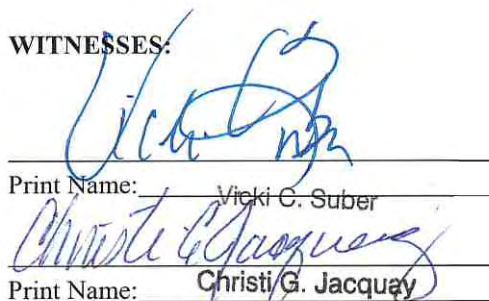 WITNESSES:
Vicki Suber
Print Name: Vicki C. Suber
Christi G Jacquay
Print Name: Christi G. Jacquay